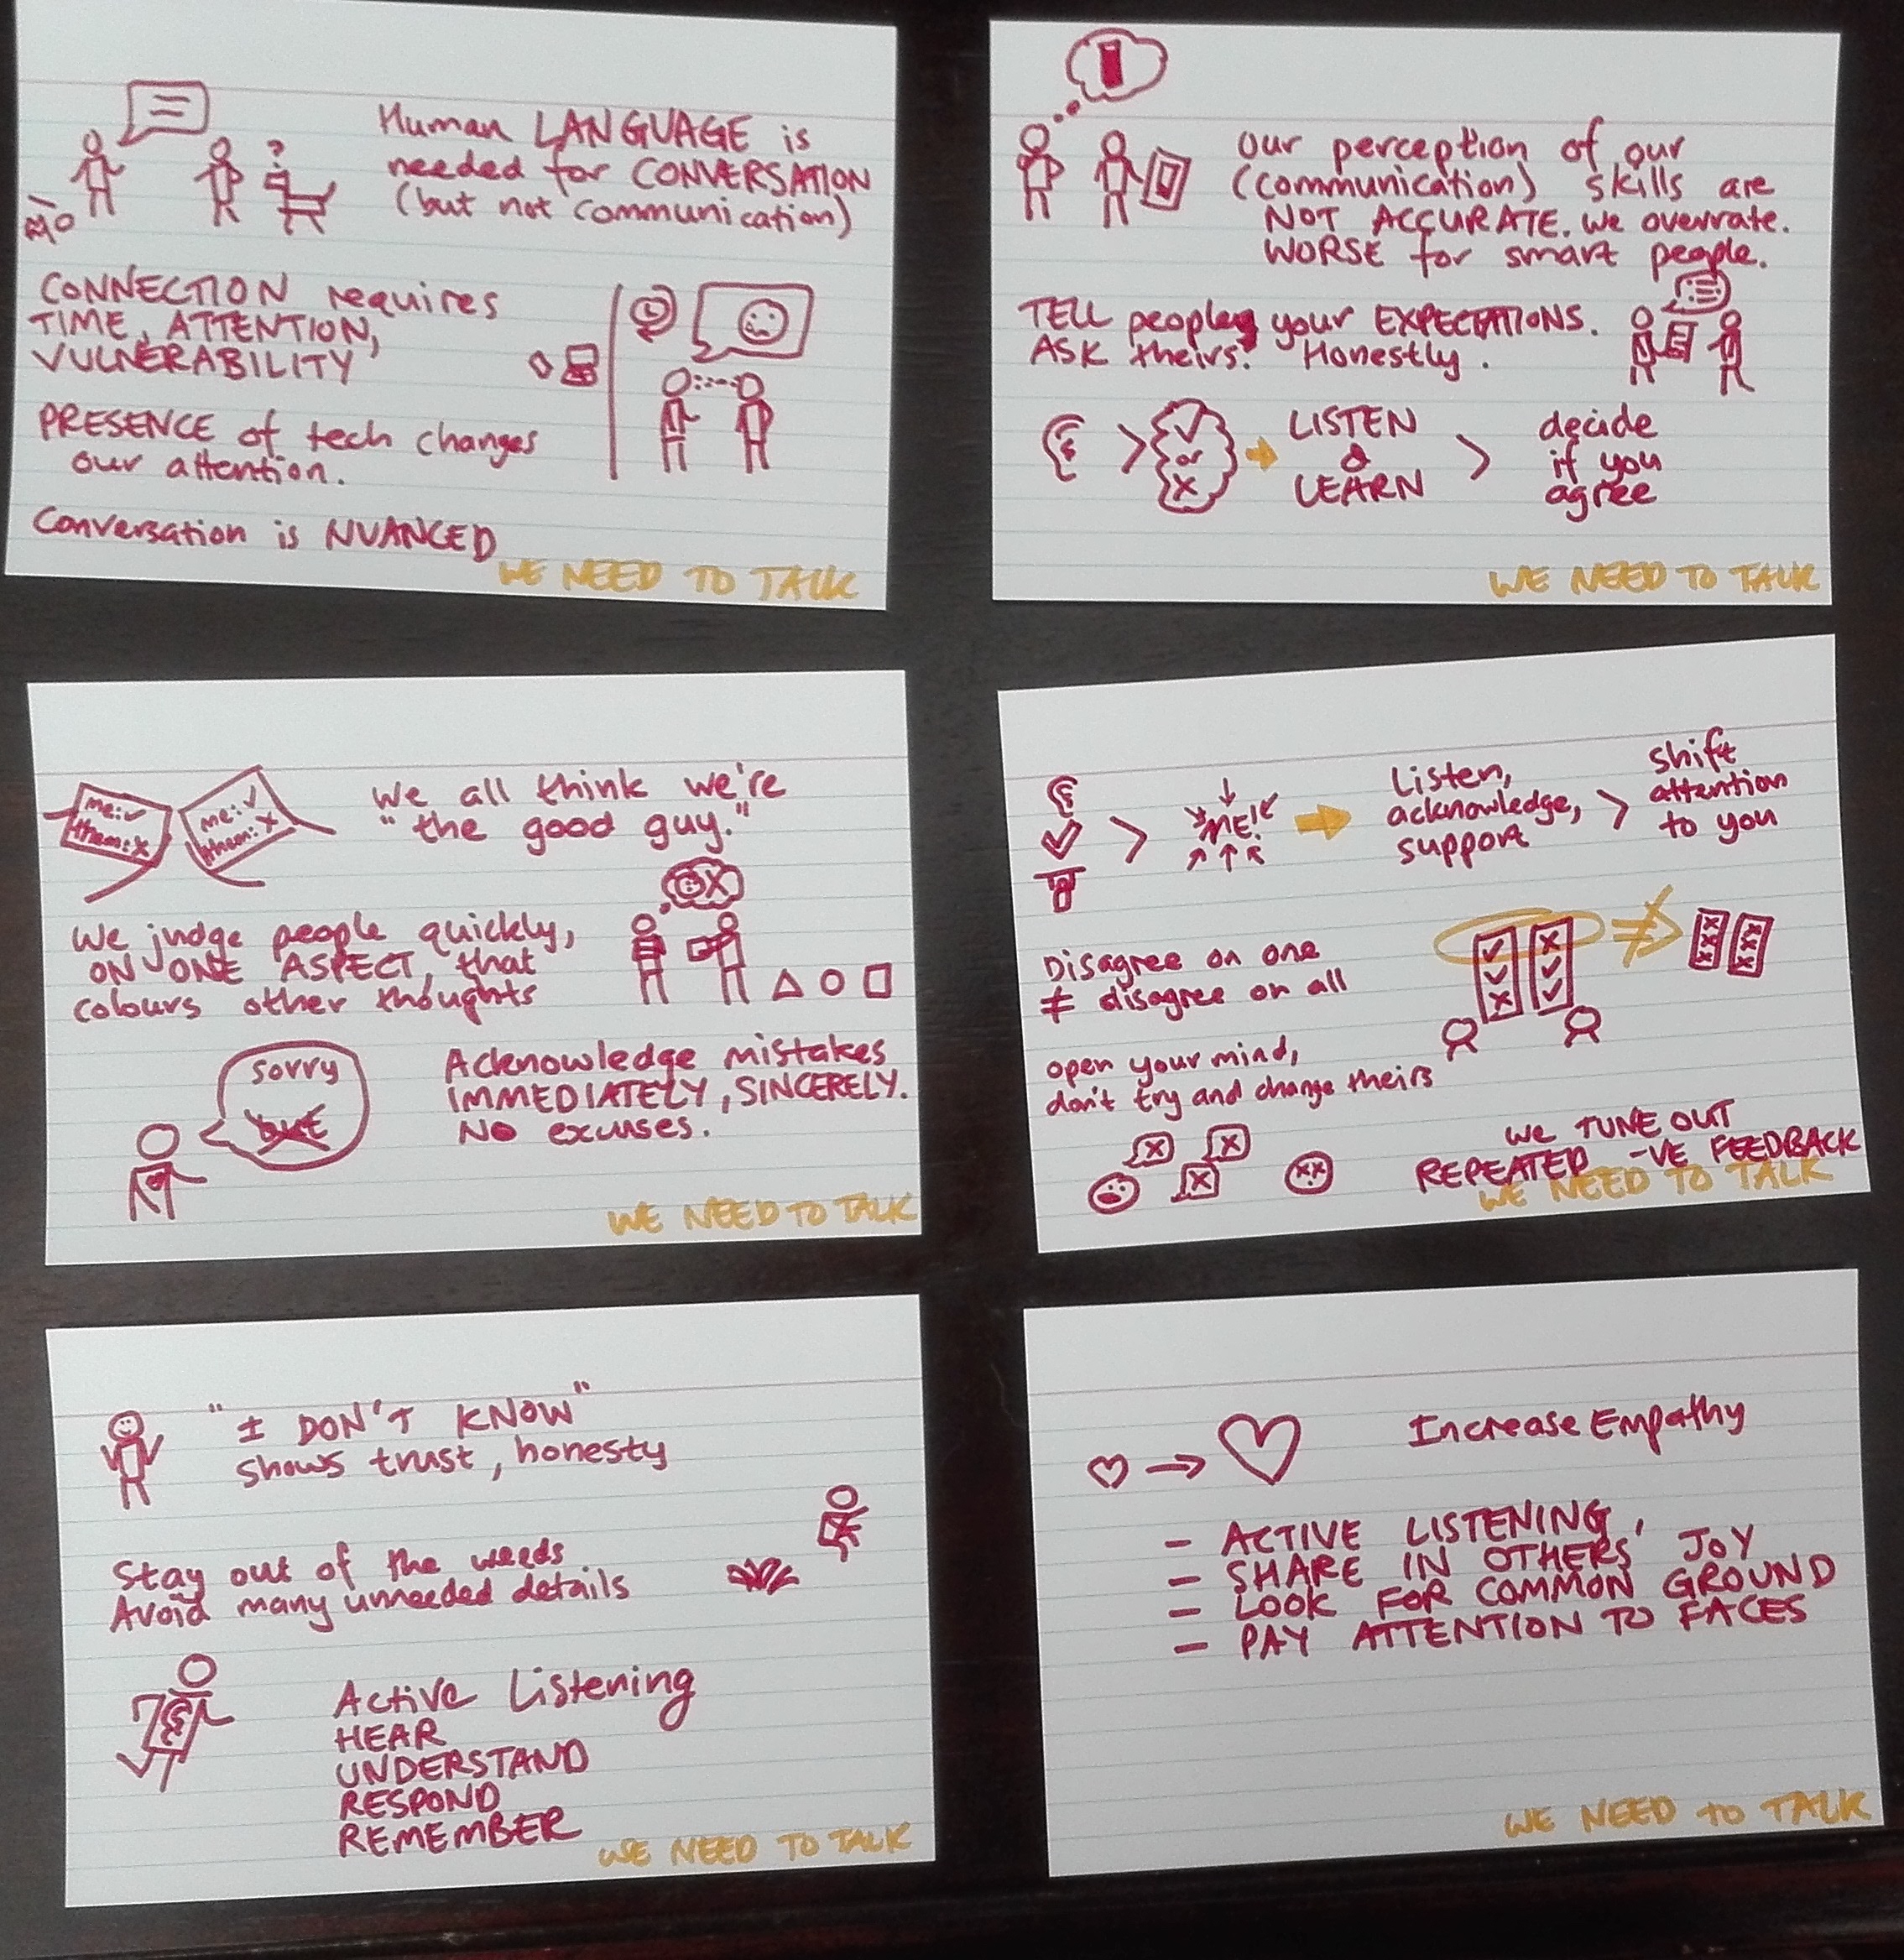 Human LANGUAGE is
needed for CONVERSATION
(but not communication)
?
CONNECTION requires
TIME, ATTENTION,
VULNERABILITY
PRESENCE of tech changes
our attention.
Conversation is NUANCED
WE NEED TO TALK
Our perception of our
(communication) skills are
NOT ACCURATE. We overrate.
WORSE for smart people.
TELL people your EXPECTATIONS.
ASK theirs. Honestly.
> ✓ or X
LISTEN
&
LEARN
>
decide
if you
agree
WE NEED TO TALK
me: ✓
them: x
me: ✓
them: x
We all think we're
"the good guy."
We judge people quickly,
ON ONE ASPECT, that
colours other thoughts
sorry
but
Acknowledge mistakes
IMMEDIATELY, SINCERELY.
NO excuses.
WE NEED TO TALK
> ME!
Listen,
acknowledge,
support
>
shift
attention
to you
Disagree on one
≠ disagree on all
open your mind,
don't try and change theirs
We TUNE OUT
REPEATED -VE FEEDBACK
WE NEED TO TALK
"I DON'T KNOW"
shows trust, honesty
Stay out of the weeds.
Avoid many unneeded details
Active Listening
HEAR
UNDERSTAND
RESPOND
REMEMBER
WE NEED TO TALK
Increase Empathy
- ACTIVE LISTENING
- SHARE IN OTHERS' JOY
- LOOK FOR COMMON GROUND
- PAY ATTENTION TO FACES
WE NEED TO TALK